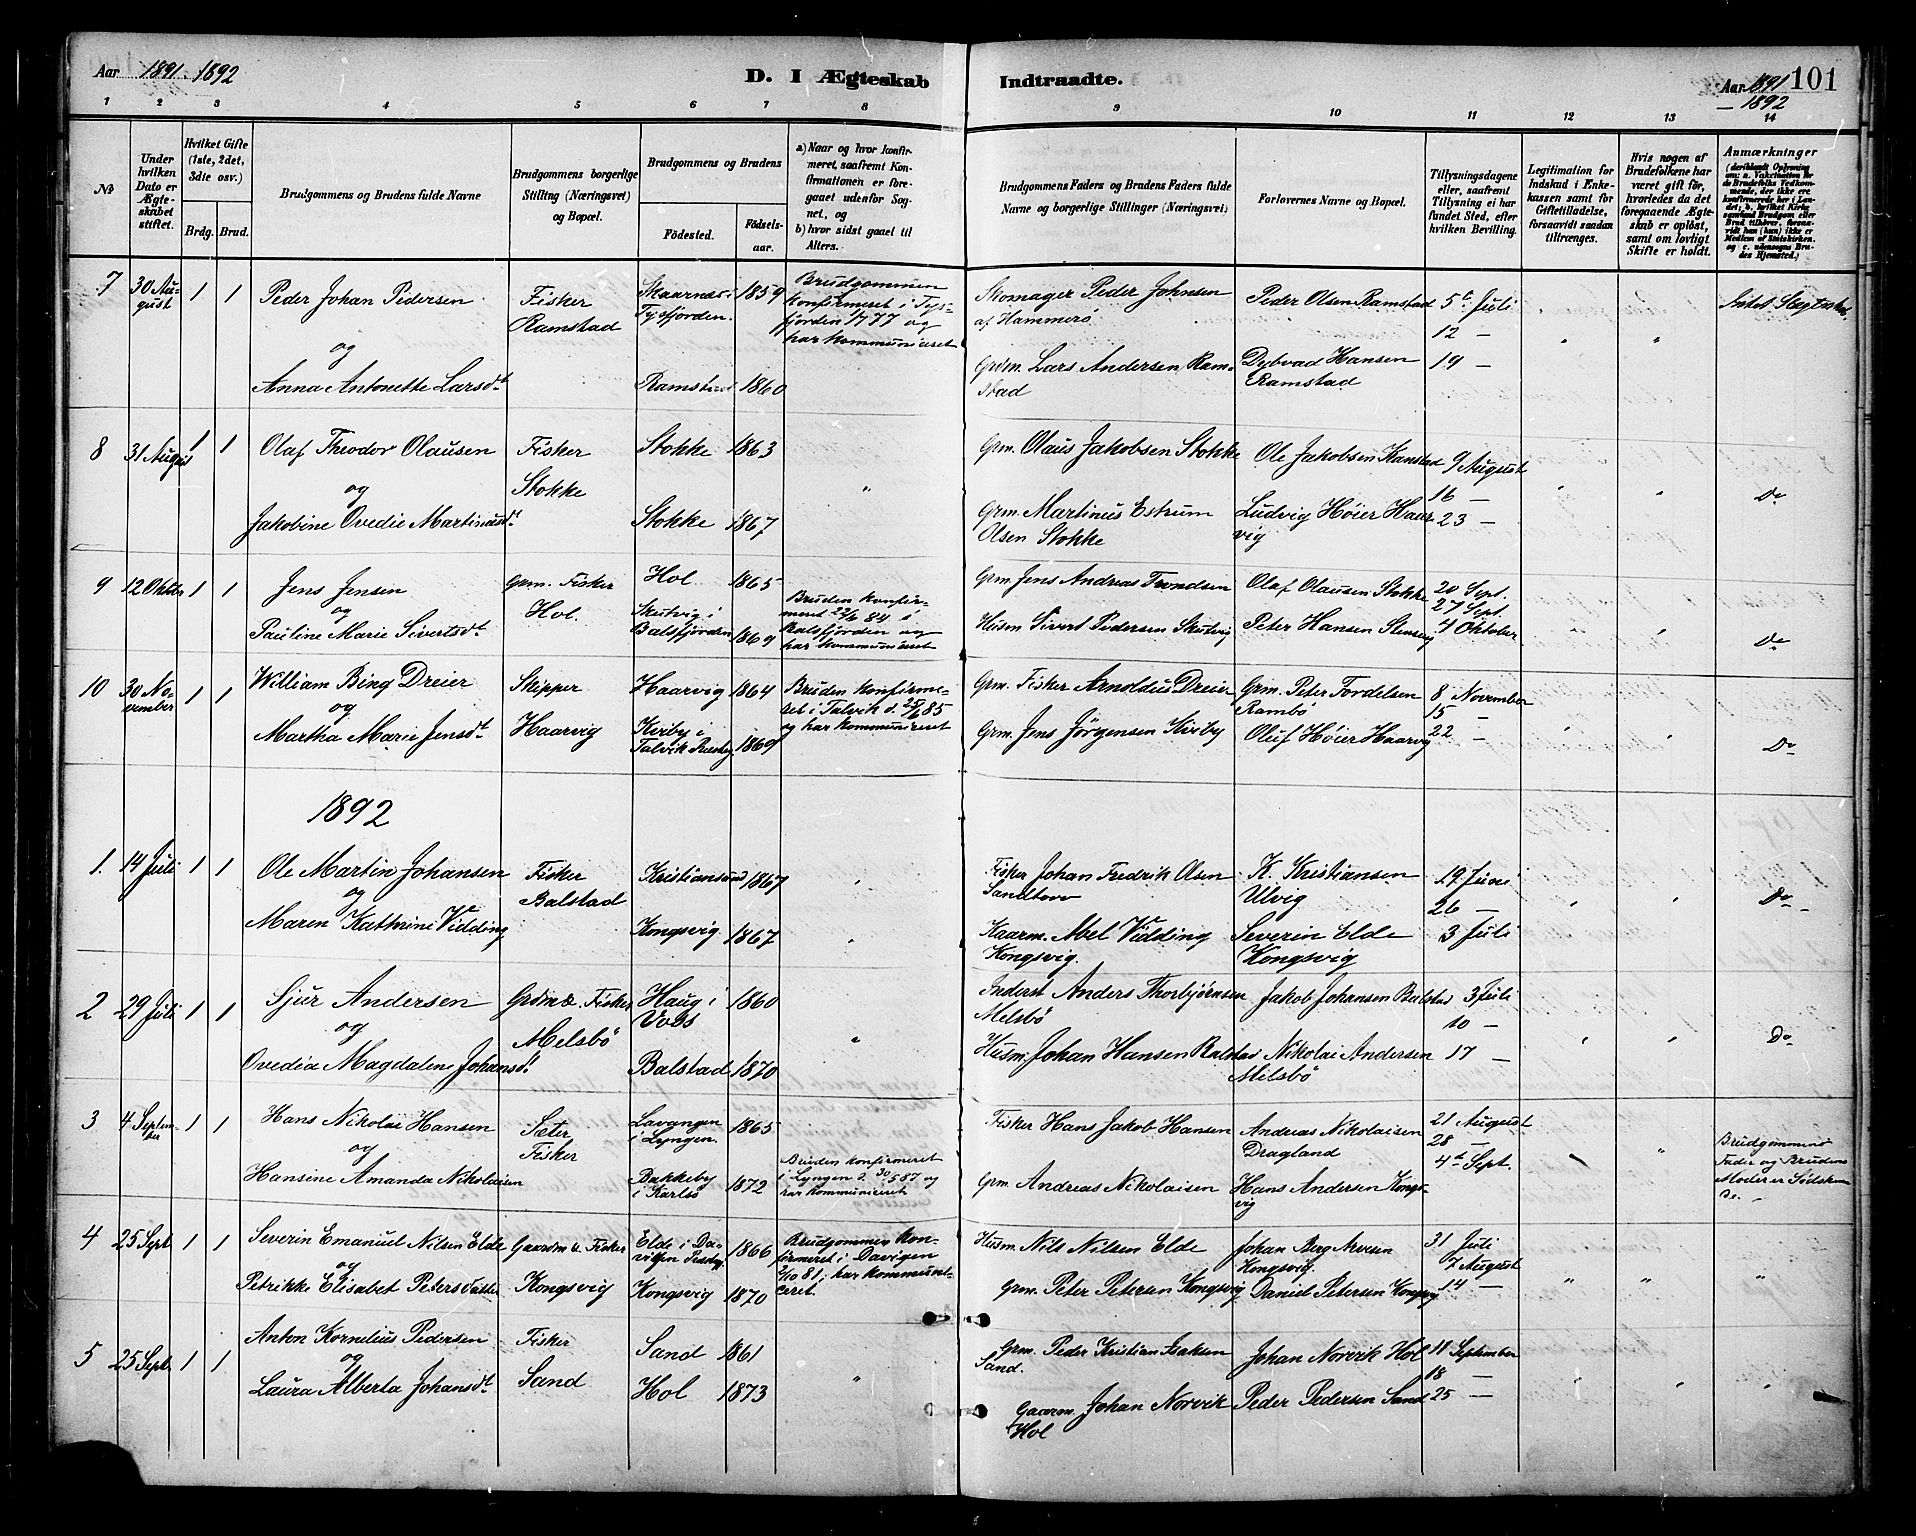 Aar 1891. 1892
D. I Ægteskab Indtraadte.
Aar 1891 101
— 1892
1 2 3 4 5 6 7 8 9 10 11 12 13 14
№
Under hvilken Dato er Ægteskabet stiftet.
Hvilket Gifte (1ste, 2det, 3die osv.)
Brdg. Brud.
Brudgommens og Brudens fulde Navne
Brudgommens borgerlige Stilling (Næringsvei) og Bopæl.
Brudgommens og Brudens
Födested. Födsels-aar.
a) Naar og hvor konfirmeret, saafremt Konfirmationen er foregaaet udenfor Sognet, og
b) hvor sidst gaaet til Alters.
Brudgommens Faders og Brudens Faders fulde Navne og borgerlige Stillinger (Næringsvei)
Forlovernes Navne og Bopæl.
Tillysningsdagene eller, saafremt Tillysning ei har fundet Sted, efter hvilken Bevilling.
Legitimation for Indskud i Ænkekassen samt for Giftetilladelse, forsaavidt saadan tiltrænges.
Hvis nogen af Brudefolkene har været gift før, hvorledes da det foregaaende Ægteskab er oplöst, samt om lovligt Skifte er holdt.
Anmærkninger
7 30 August 1 1 Peder Johan Pedersen Fisker Ramstad Skaarnæs i Tysfjorden. 1859 Brudgommen konfirmeret i Tysfjorden 1877 og har kommuniceret Skomager Peder Johnsen af Hammerö Peder Olsen Ramstad 5te Juli
12 —
og
Anna Antonette Larsdt Ramstad 1860 Grdm. Lars Andersen Ramstad Dybvad Hansen Ramstad 19 —
8 31 August 1 1 Olaf Theodor Olausen Fisker Stokke Stokke 1863 " Grm. Olaus Jakobsen Stokke Ole Jakobsen Kanstad 9 August
og
16 — " " Do
Jakobine Ovedie Martinusdt Stokke 1867 Grm. Martinus Estrum Olsen Stokke Ludvig Höier Haarvig 23 —
9 12 Oktber 1 1 Jens Jensen Grm. Fisker Hol. Hol 1865 Bruden konfirmeret 22/6 84 i Balsfjorden og har kommuniceret Grm. Jens Andreas Trondsen Olaf Olausen Stokke 20 Sept.
27 Sept
og
Pauline Marie Sivertsdt Skutvig i Balsfjorden 1869 Husm Sivert Pedersen Skutvig Peter Hansen 4 Oktober Do
10 30 November 1 1 William Bing Dreier Skipper Haarvig Haarvig 1864 Bruden konfirmeret i Talvik d. 28/6 85 og har kommuniceret Grm. Fisker Arnoldus Dreier Grm. Peter Fordelsen Rambö 8 November
15 —
og
Martha Marie Jensdt Kirby i Talvik Prestg. 1869 Grm. Jens Jörgensen Kirby Oluf Höier Haarvig 22 — Do
1892
1. 14 Juli 1 1 Ole Martin Johansen Fisker Balstad Kristiansund 1867 " Fisker Johan Fredrik Olsen Sandtorv K. Kristiansen Ulvig 19. Juni
26 — Do
og
Maren Kathrine Vidding Kongsvig 1867 " Kaarm. Abel Vidding Kongsvig. Severin Elde Kongsvig 3 Juli
2 29 Juli 1 1 Sjur Andersen Grdmd. Fisker Melsbö Haug i Voss 1860 " Inderst Anders Thorbjörnsen Melsbö Jakob Johansen Balstad 3 Juli
10 —
og
Ovedia Magdalene Johansdt Balstad 1870 Husm. Johan Hansen Balstad Nikolai Andersen Milsbö 17 — Do
3 4 September 1 1 Hans Nikolai Hansen Sæter Fisker Lavangen i Lyngen. 1865 Fisker Hans Jakob Hansen Andreas Nikolaisen Dragland 21 August
28 —
og
Hansine Amanda Nikolaisen Bakkeby i Karlsö 1872 Bruden konfirmeret i Lyngen d. 30/5 87 og har kommuniceret Grm. Andreas Nikolaisen Hans Andersen Kongsvig 4de Sept. Brudgommens Fader og Brudens Moder er Södsken
4 25 Sept 1 1 Severin Emanuel Nilsen Elde Gaardm. & Fisker Kongsvig Elde i Davigen Prestg. 1866 Brudgommen konfirmeret i Davigen 2/10 81; har kommuniceret. Husm. Nils Nilsen Elde Johan Berg Kongsvig. 31 Juli
7 August
og
Petrikke Elisabet Petersdatter Kongsvig 1870 Grm. Peter Petersen Kongsvig Daniel Petersen Kongsvig 14 — " " "
5 25 Sept. 1 1 Anton Kornelius Pedersen Fisker Sand Sand 1861 " Grm. Peder Kristian Isaksen Sand. Johan Norvik Hol 11 September
18 —
og
Laura Alberta Johansdt Hol 1873 Gaarm. Johan Norvik Hol Peder Pedersen Sand 25 —